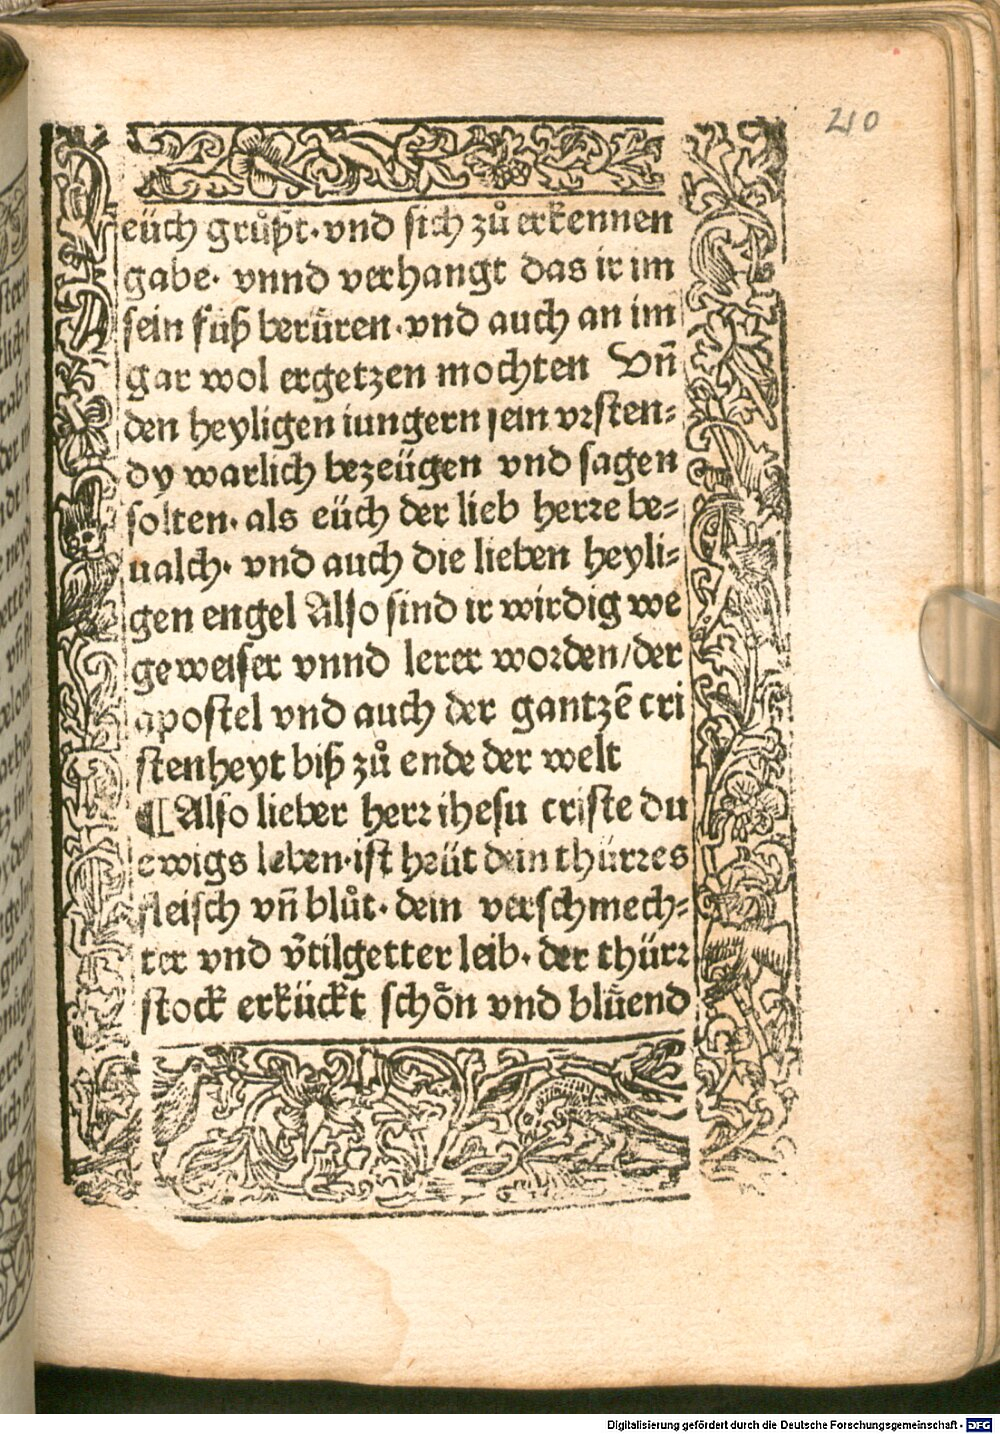 210
eüch grůßt·vnd sich zů erkennen
gabe· vnnd verhangt das ir im
sein füß berüren·vnd auch an im
gar wol ergetzen mochten Vn̄
den heyligen iungern sein vrsten⸗
dy warlich bezeügen vnd sagen
solten·als eüch der lieb herre be⸗
ualch· vnd auch die lieben heyli⸗
gen engel Also sind ir wirdig we
ge weiser vnnd lerer worden/der
apostel vnd auch der gantzē cri
stenheyt biß zů ende der welt
¶Also lieber herr ihesu criste du
ewigs leben·ist heüt dein thürres
fleisch vn̄ blůt·dein verschmech⸗
ter vnd v̄tilgetter leib·der thürr
stock erkückt schön vnd blüend
Digitalisierung gefördert durch die Deutsche Forschungsgemeinschaft - DFG